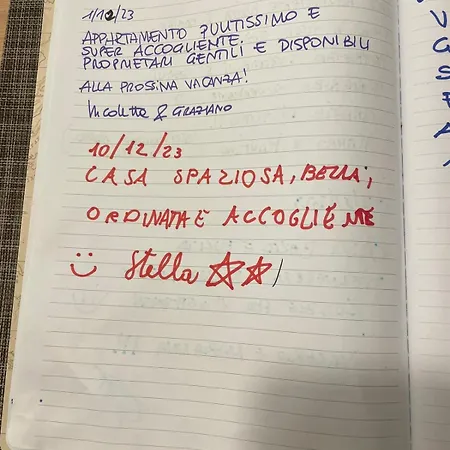 1/12/23
APPARTAMENTO PULITISSIMO E
SUPER ACCOGLIENTE.
PROPRIETARI GENTILI E DISPONIBILI
ALLA PROSSIMA VACANZA!
Nicoletta & GRAZIANO
10/12/23
CASA SPAZIOSA, BELLA,
ORDINATA E ACCOGLIENTE
Stella
V
G
S